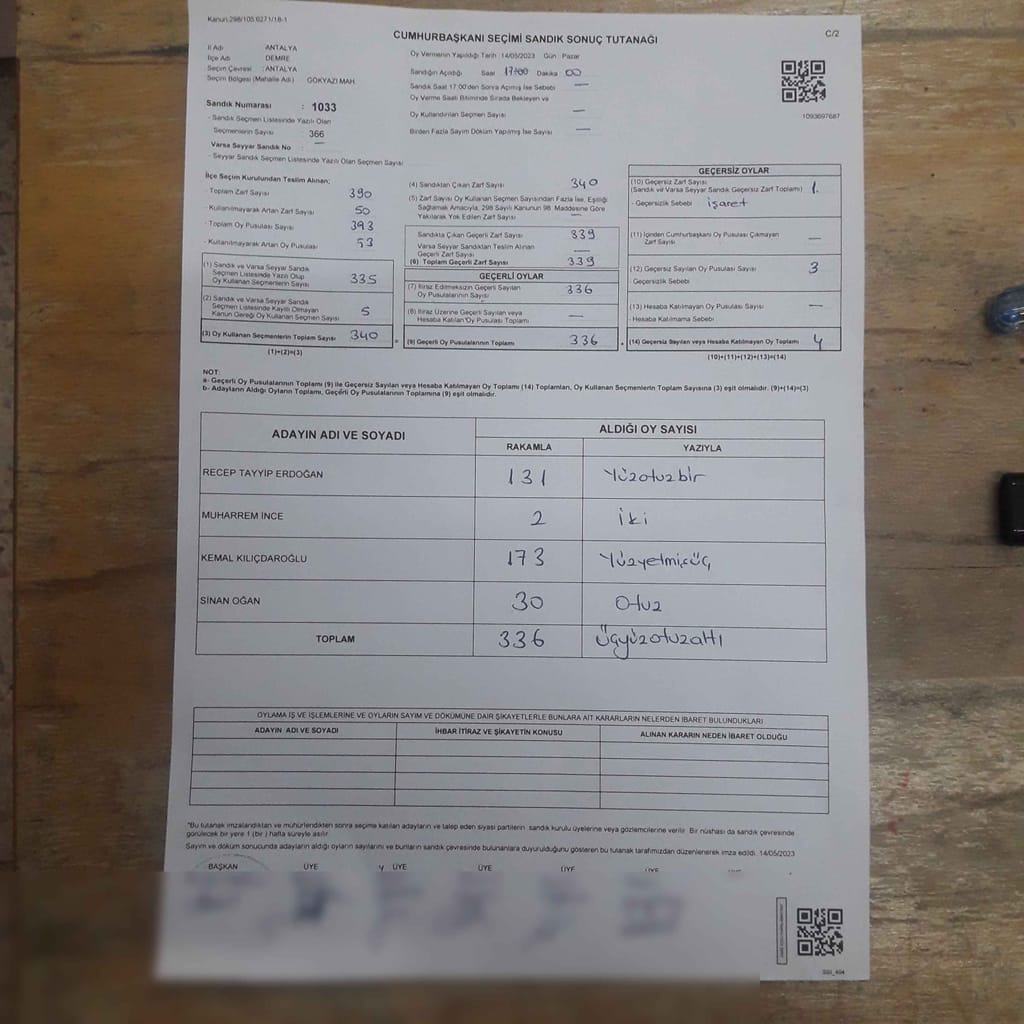 Kanun:298/105.6271/18-1
C/2
CUMHURBAŞKANI SEÇİMİ SANDIK SONUÇ TUTANAĞI
İl Adı : ANTALYA
İlçe Adı : DEMRE
Seçim Çevresi : ANTALYA
Seçim Bölgesi (Mahalle Adı) : GÖKYAZI MAH.
Sandık Numarası : 1033
- Sandık Seçmen Listesinde Yazılı Olan
Seçmenlerin Sayısı : 366
Varsa Seyyar Sandık No : —
- Seyyar Sandık Seçmen Listesinde Yazılı Olan Seçmen Sayısı
Oy Vermenin Yapıldığı Tarih : 14/05/2023 Gün : Pazar
Sandığın Açıldığı Saat 17:00 Dakika 00
Sandık Saat 17:00'den Sonra Açılmış İse Sebebi —
Oy Verme Saati Bitiminde Sırada Bekleyen ve
Oy Kullandırılan Seçmen Sayısı —
Birden Fazla Sayım Döküm Yapılmış İse Sayısı —
1093697687
İlçe Seçim Kurulundan Teslim Alınan;
- Toplam Zarf Sayısı 390
- Kullanılmayarak Artan Zarf Sayısı 50
- Toplam Oy Pusulası Sayısı 393
- Kullanılmayarak Artan Oy Pusulası 53
(1) Sandık ve Varsa Seyyar Sandık
Seçmen Listesinde Yazılı Olup
Oy Kullanan Seçmenlerin Sayısı 335
(2) Sandık ve Varsa Seyyar Sandık
Seçmen Listesinde Kayıtlı Olmayan
Kanun Gereği Oy Kullanan Seçmen Sayısı 5
(3) Oy Kullanan Seçmenlerin Toplam Sayısı 340
(1)+(2)=(3)
(4) Sandıktan Çıkan Zarf Sayısı 340
(5) Zarf Sayısı Oy Kullanan Seçmen Sayısından Fazla İse, Eşitliği
Sağlamak Amacıyla, 298 Sayılı Kanunun 98. Maddesine Göre
Yakılarak Yok Edilen Zarf Sayısı —
Sandıkta Çıkan Geçerli Zarf Sayısı 339
Varsa Seyyar Sandıktan Teslim Alınan
Geçerli Zarf Sayısı —
(6) Toplam Geçerli Zarf Sayısı 339
GEÇERLİ OYLAR
(7) İtiraz Edilmeksizin Geçerli Sayılan
Oy Pusulasının Sayısı 336
(8) İtiraz Üzerine Geçerli Sayılan veya
Hesaba Katılan Oy Pusulası Toplamı —
(9) Geçerli Oy Pusulalarının Toplamı 336
GEÇERSİZ OYLAR
(10) Geçersiz Zarf Sayısı
(Sandık ve Varsa Seyyar Sandık Geçersiz Zarf Toplamı) 1.
- Geçersizlik Sebebi işaret
(11) İçinden Cumhurbaşkanı Oy Pusulası Çıkmayan
Zarf Sayısı —
(12) Geçersiz Sayılan Oy Pusulası Sayısı 3
- Geçersizlik Sebebi
(13) Hesaba Katılmayan Oy Pusulası Sayısı —
- Hesaba Katılmama Sebebi
(14) Geçersiz Sayılan veya Hesaba Katılmayan Oy Toplamı 4
(10)+(11)+(12)+(13)=(14)
NOT:
a- Geçerli Oy Pusulalarının Toplamı (9) ile Geçersiz Sayılan veya Hesaba Katılmayan Oy Toplamı (14) Toplamları, Oy Kullanan Seçmenlerin Toplam Sayısına (3) eşit olmalıdır. (9)+(14)=(3)
b- Adayların Aldığı Oyların Toplamı, Geçerli Oy Pusulalarının Toplamına (9) eşit olmalıdır.
ADAYIN ADI VE SOYADI
ALDIĞI OY SAYISI
RAKAMLA YAZIYLA
RECEP TAYYİP ERDOĞAN 131 Yüzotuzbir
MUHARREM İNCE 2 İki
KEMAL KILIÇDAROĞLU 173 Yüzyetmişüç
SİNAN OĞAN 30 Otuz
TOPLAM 336 Üçyüzotuzaltı
OYLAMA İŞ VE İŞLEMLERİNE VE OYLARIN SAYIM VE DÖKÜMÜNE DAİR ŞİKAYETLERLE BUNLARA AİT KARARLARIN NELERDEN İBARET BULUNDUKLARI
ADAYIN ADI VE SOYADI İHBAR İTİRAZ VE ŞİKAYETİN KONUSU ALINAN KARARIN NEDEN İBARET OLDUĞU
"Bu tutanak imzalandıktan ve mühürlendikten sonra seçime katılan adayların ve talep eden siyasi partilerin sandık kurulu üyelerine veya gözlemcilerine verilir. Bir nüshası da sandık çevresinde
görülecek bir yere 1 (bir) hafta süreyle asılır.
Sayım ve döküm sonucunda adayların aldığı oyların sayılarını ve bunların sandık çevresinde bulunanlara duyurulduğunu gösteren bu tutanak tarafımızdan düzenlenerek imza edildi. 14/05/2023
BAŞKAN ÜYE ÜYE ÜYE ÜYE ÜYE